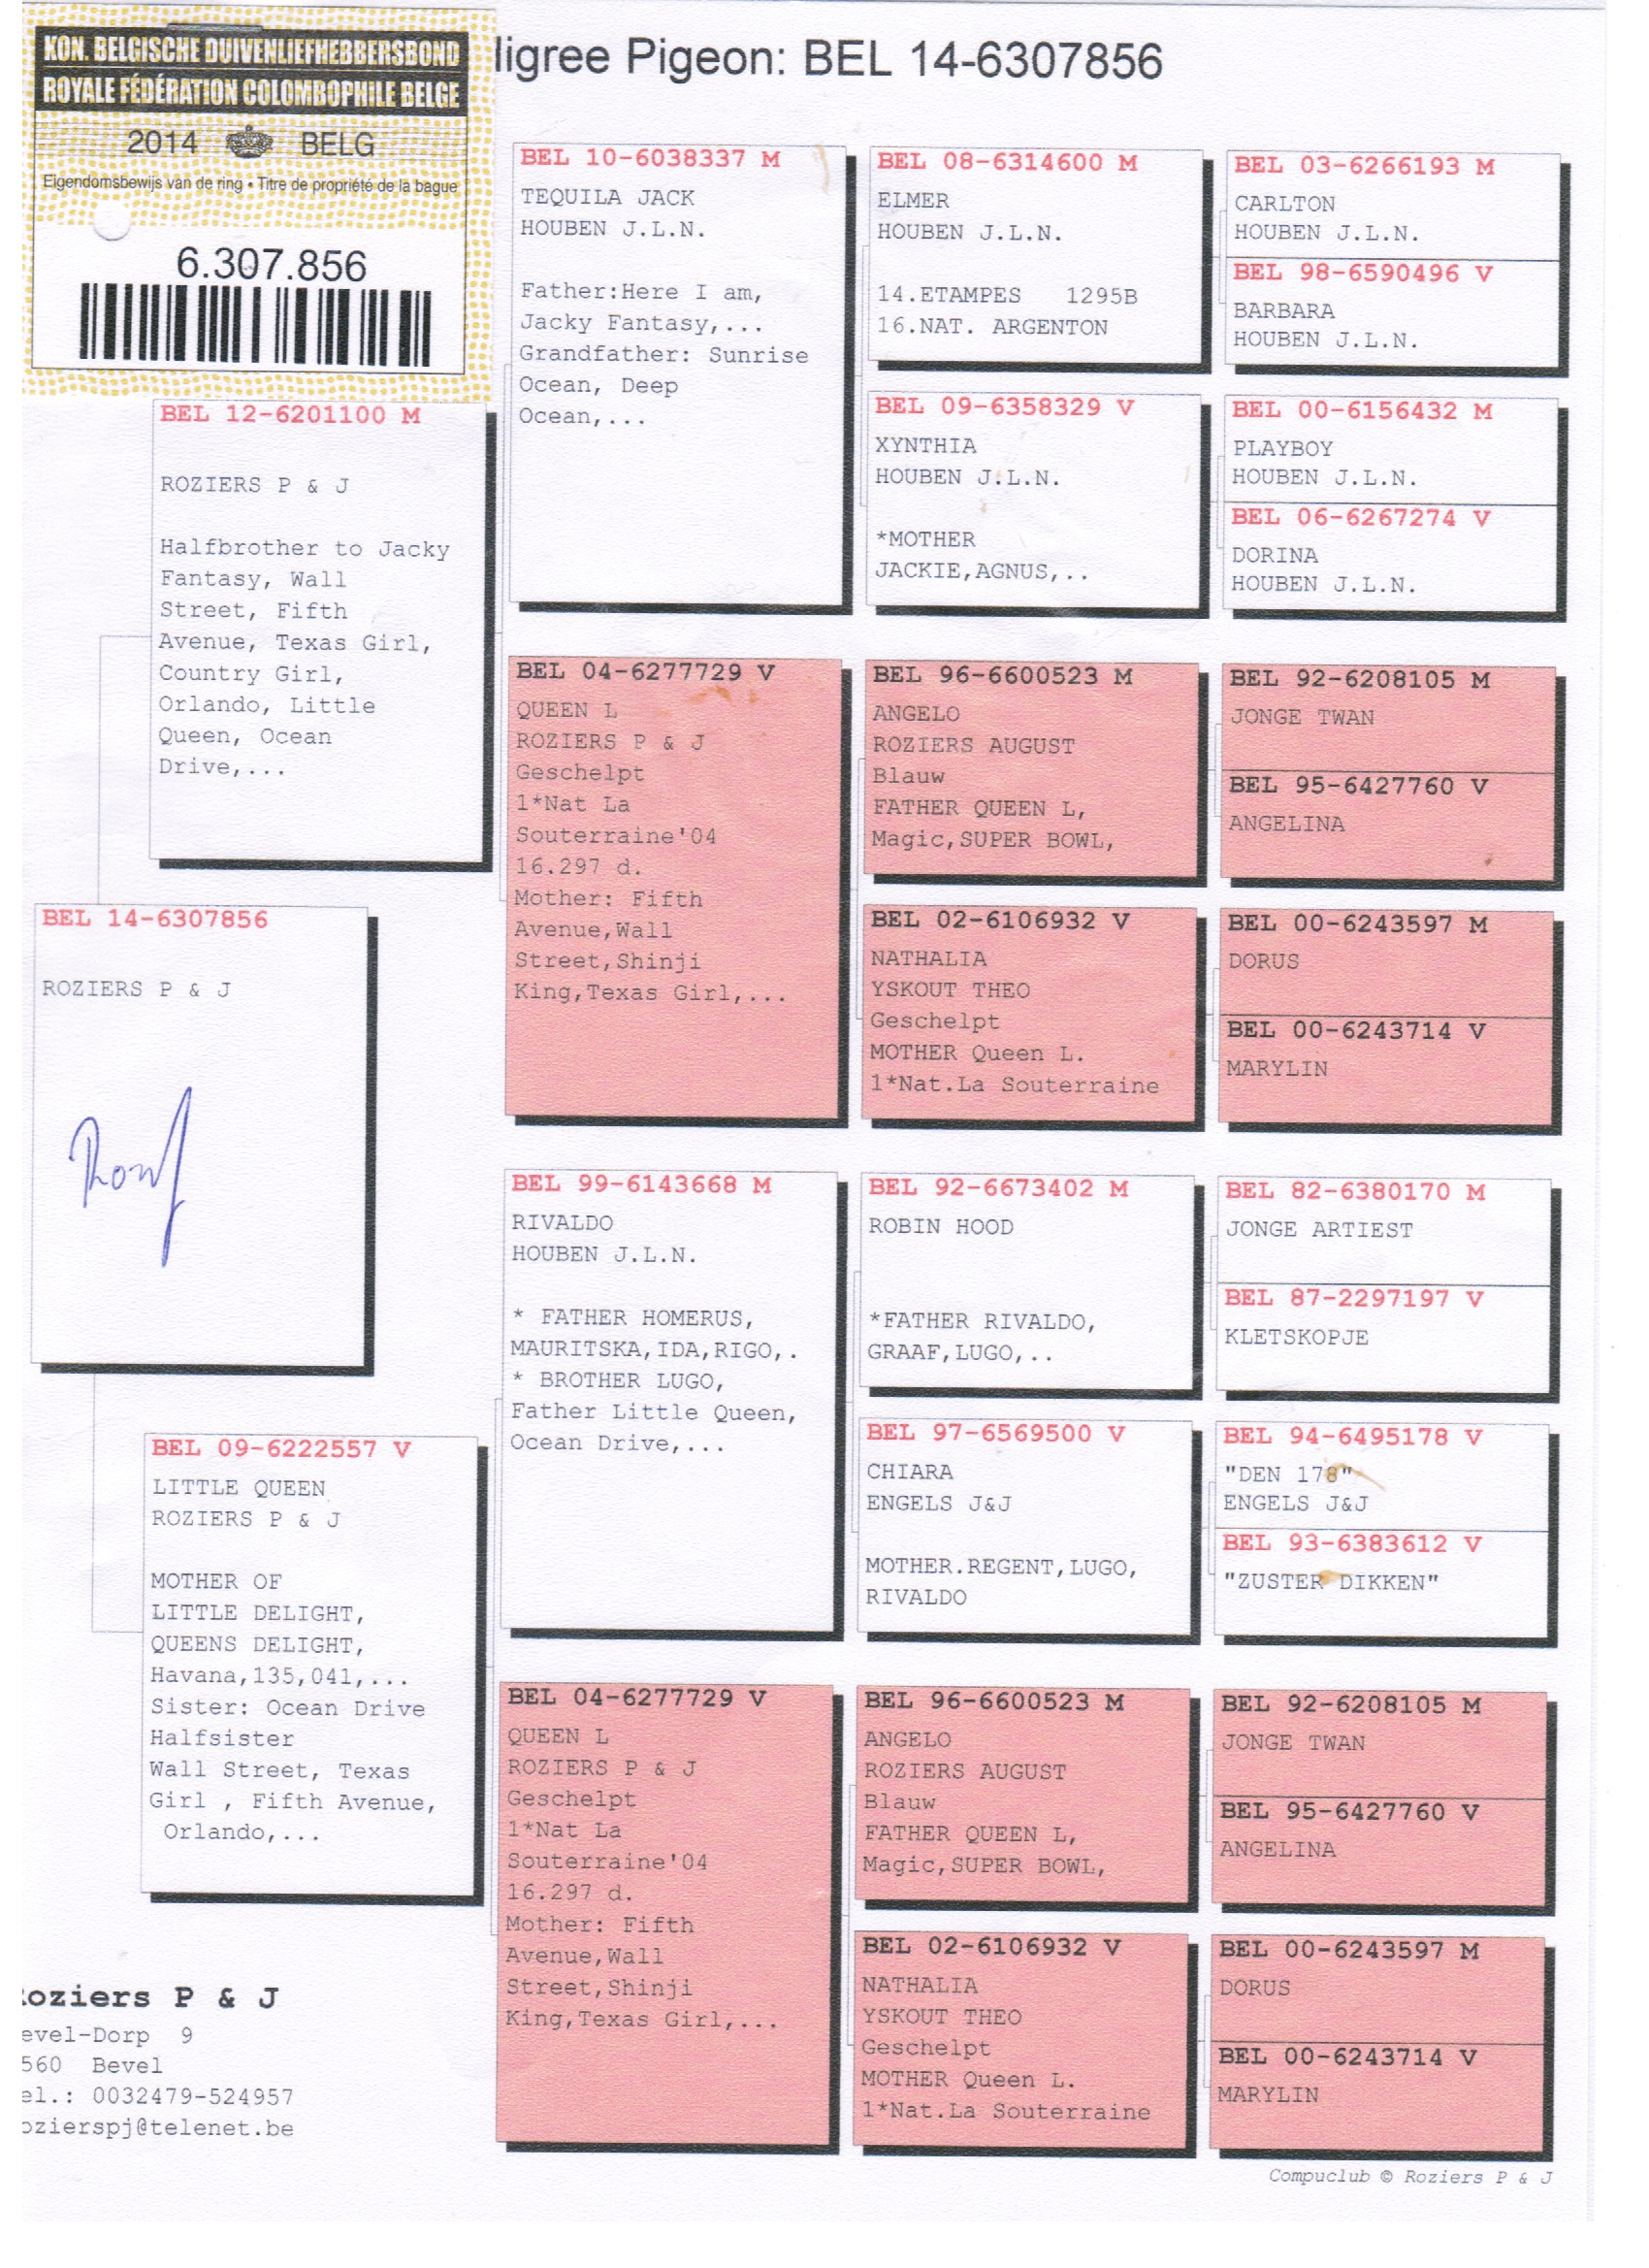 KON. BELGISCHE DUIVENLIEFHEBBERSBOND
ROYALE FÉDÉRATION COLOMBOPHILE BELGE
2014 BELG
Eigendomsbewijs van de ring • Titre de propriété de la bague
6.307.856
ligree Pigeon: BEL 14-6307856
BEL 12-6201100 M
ROZIERS P & J
Halfbrother to Jacky
Fantasy, Wall
Street, Fifth
Avenue, Texas Girl,
Country Girl,
Orlando, Little
Queen, Ocean
Drive,...
BEL 14-6307856
ROZIERS P & J
BEL 09-6222557 V
LITTLE QUEEN
ROZIERS P & J
MOTHER OF
LITTLE DELIGHT,
QUEENS DELIGHT,
Havana,135,041,...
Sister: Ocean Drive
Halfsister
Wall Street, Texas
Girl , Fifth Avenue,
Orlando,...
oziers P & J
evel-Dorp 9
560 Bevel
el.: 0032479-524957
ozierspj@telenet.be
BEL 10-6038337 M
TEQUILA JACK
HOUBEN J.L.N.
Father:Here I am,
Jacky Fantasy,...
Grandfather: Sunrise
Ocean, Deep
Ocean,...
BEL 04-6277729 V
QUEEN L
ROZIERS P & J
Geschelpt
1*Nat La
Souterraine'04
16.297 d.
Mother: Fifth
Avenue,Wall
Street,Shinji
King,Texas Girl,...
BEL 99-6143668 M
RIVALDO
HOUBEN J.L.N.
* FATHER HOMERUS,
MAURITSKA,IDA,RIGO,.
* BROTHER LUGO,
Father Little Queen,
Ocean Drive,...
BEL 04-6277729 V
QUEEN L
ROZIERS P & J
Geschelpt
1*Nat La
Souterraine'04
16.297 d.
Mother: Fifth
Avenue,Wall
Street,Shinji
King,Texas Girl,...
BEL 08-6314600 M
ELMER
HOUBEN J.L.N.
14.ETAMPES 1295B
16.NAT. ARGENTON
BEL 09-6358329 V
XYNTHIA
HOUBEN J.L.N.
*MOTHER
JACKIE,AGNUS,..
BEL 96-6600523 M
ANGELO
ROZIERS AUGUST
Blauw
FATHER QUEEN L,
Magic,SUPER BOWL,
BEL 02-6106932 V
NATHALIA
YSKOUT THEO
Geschelpt
MOTHER Queen L.
1*Nat.La Souterraine
BEL 92-6673402 M
ROBIN HOOD
*FATHER RIVALDO,
GRAAF,LUGO,..
BEL 97-6569500 V
CHIARA
ENGELS J&J
MOTHER.REGENT,LUGO,
RIVALDO
BEL 96-6600523 M
ANGELO
ROZIERS AUGUST
Blauw
FATHER QUEEN L,
Magic,SUPER BOWL,
BEL 02-6106932 V
NATHALIA
YSKOUT THEO
Geschelpt
MOTHER Queen L.
1*Nat.La Souterraine
BEL 03-6266193 M
CARLTON
HOUBEN J.L.N.
BEL 98-6590496 V
BARBARA
HOUBEN J.L.N.
BEL 00-6156432 M
PLAYBOY
HOUBEN J.L.N.
BEL 06-6267274 V
DORINA
HOUBEN J.L.N.
BEL 92-6208105 M
JONGE TWAN
BEL 95-6427760 V
ANGELINA
BEL 00-6243597 M
DORUS
BEL 00-6243714 V
MARYLIN
BEL 82-6380170 M
JONGE ARTIEST
BEL 87-2297197 V
KLETSKOPJE
BEL 94-6495178 V
"DEN 178"
ENGELS J&J
BEL 93-6383612 V
"ZUSTER DIKKEN"
BEL 92-6208105 M
JONGE TWAN
BEL 95-6427760 V
ANGELINA
BEL 00-6243597 M
DORUS
BEL 00-6243714 V
MARYLIN
Compuclub © Roziers P & J